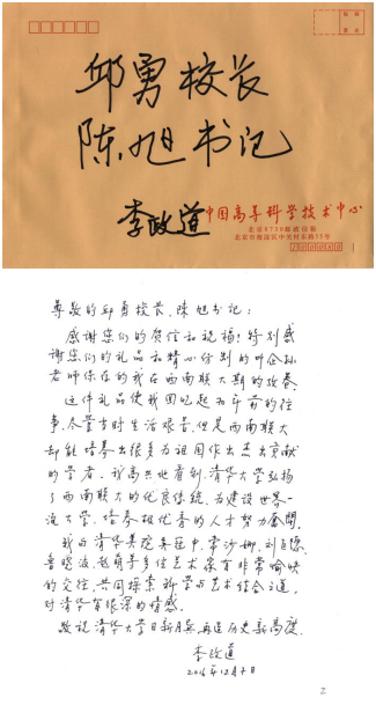 邱勇校长
陈旭书记
李政道 中国高等科学技术中心
北京8730邮政信箱
北京市海淀区中关村东路55号
尊敬的邱勇校长、陈旭书记：
感谢您们的贺信和祝福！特别感
谢您们的礼品和精心 的叶企孙
老师保存的我在西南联大期的考卷
这件礼品使我回忆起 年前的往
事。尽管当时生活艰苦，但是西南联大
却能培养出很多为祖国作出杰出贡献
的学者。我高兴地看到，清华大学弘扬
了西南联大的优良传统，为建设世界一
流大学，培养 优秀的人才努力奋斗。
我与清华美院吴冠中，常沙娜，刘巨德，
鲁晓波，赵萌等多位艺术家有非常愉快
的交往，共同探索科学与艺术结合之道，
对清华有很深的情感。
敬祝清华大学日新月异，再造历史新高度。
李政道
2016年12月7日
2